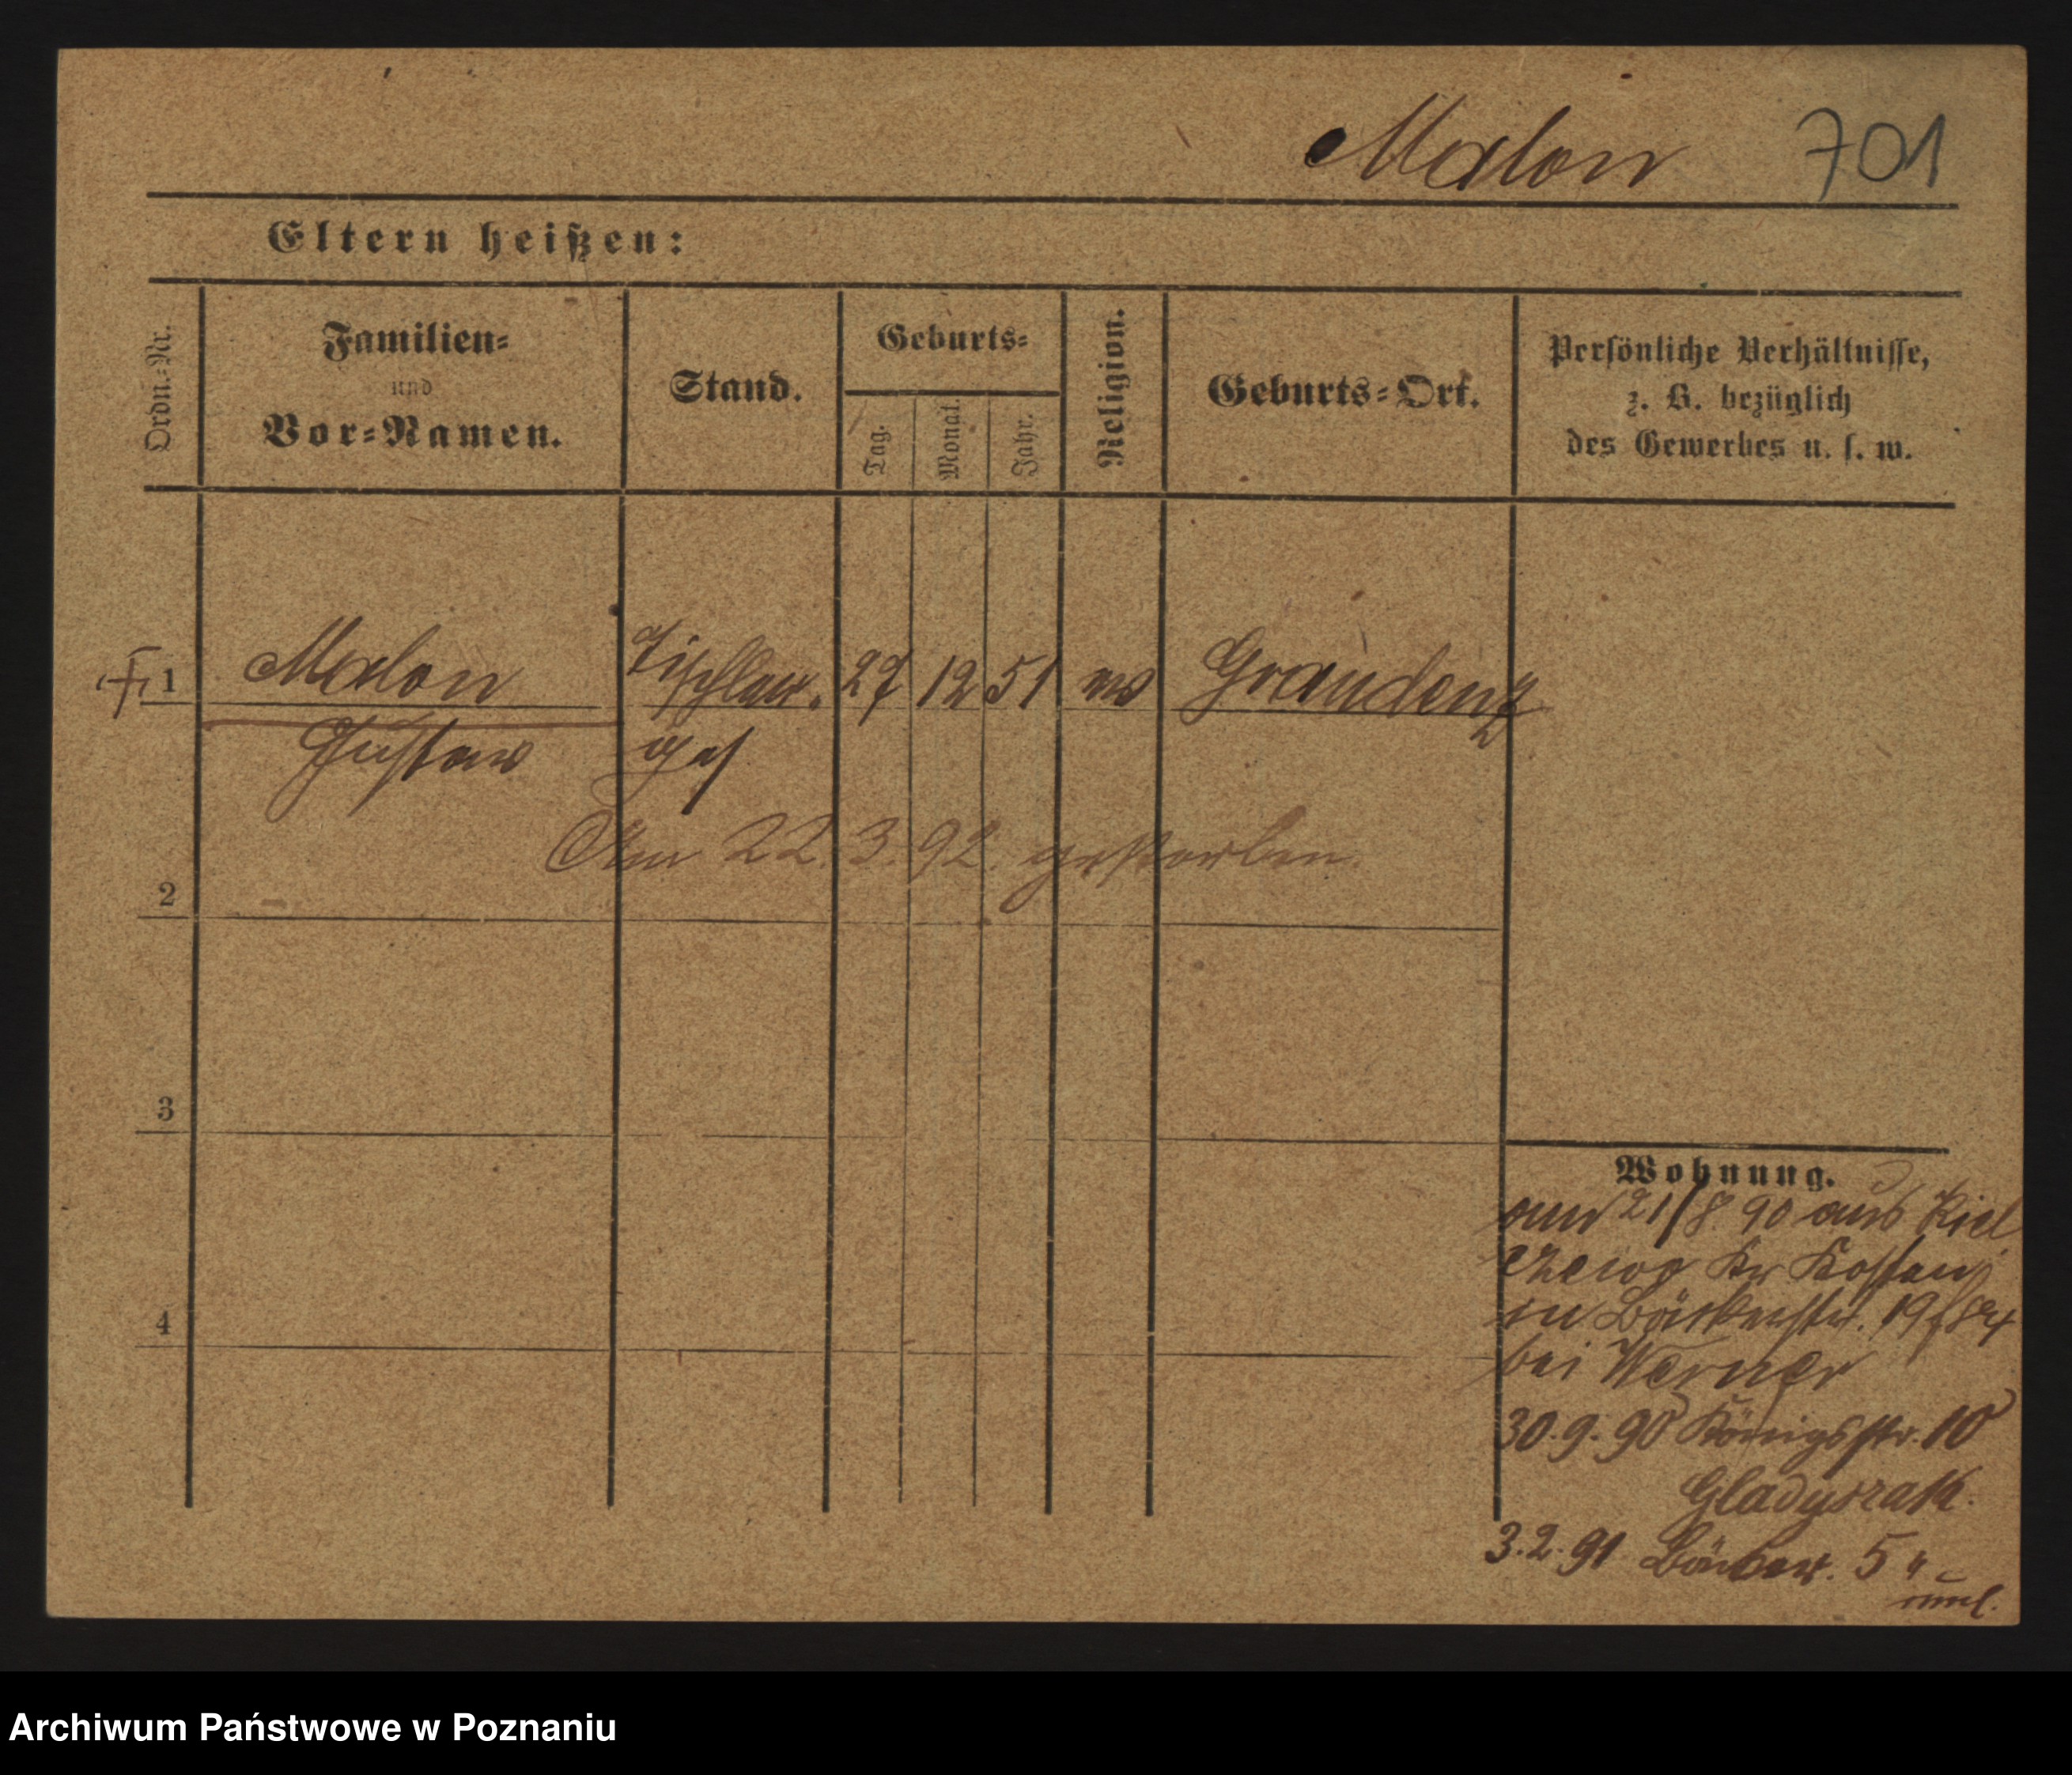 Malon 701
Eltern heißen:
Ordn.-Nr.
Familien-
und
Vor-Namen.
Stand.
Geburts-
Tag.
Monat.
Jahr.
Religion.
Geburts-Ort.
Persönliche Verhältnisse,
z. B. bezüglich
des Gewerbes u. s. w.
1 Malon Tischler. 27 12 51 ev Graudenz
Gustav ges
Am 22. 3. 92. gestorben.
2
3
4
Wohnung.
am 21/8. 90 aus Kiel
czewo Kr Kosten
in Bäckerstr. 19
bei Werner
30. 9. 90 Königsstr. 10
Gladyszak.
3. 2. 91 Bäcker. 5